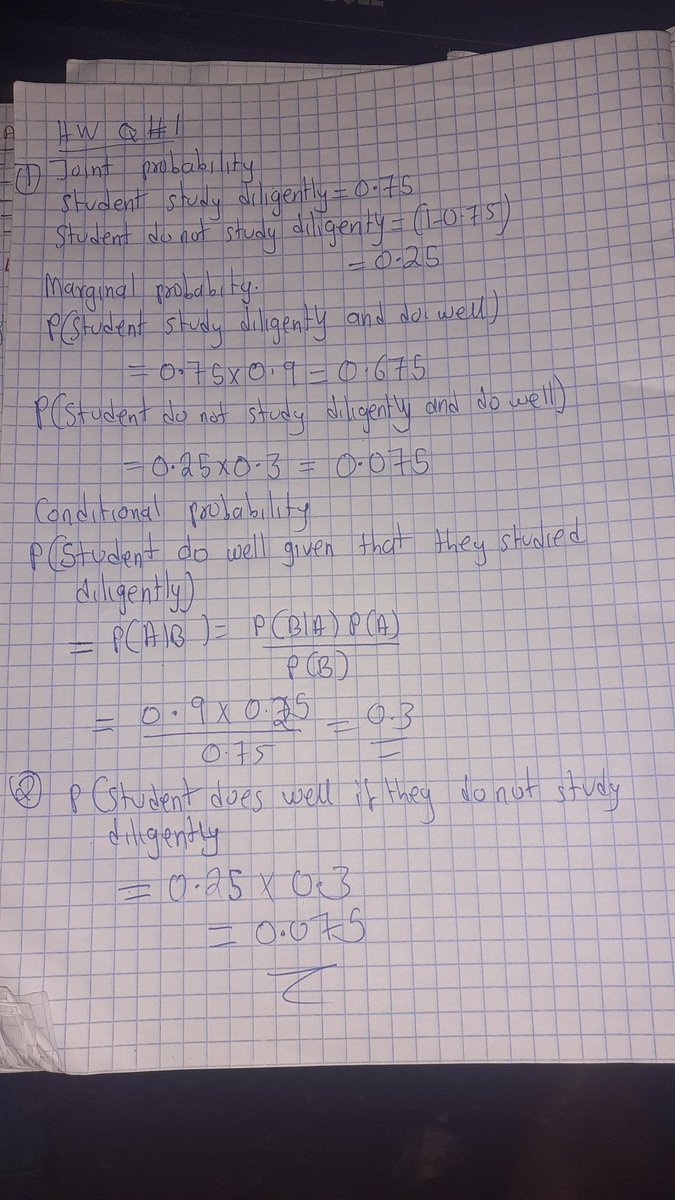 HW Q #1
① Joint probability
Student study diligently = 0.75
Student do not study diligenty = (1-0.75)
= 0.25
Marginal probabity.
P(Student study diligenty and do well)
= 0.75 x 0.9 = 0.675
P(Student do not study diligently and do well)
= 0.25 x 0.3 = 0.075
Conditional probability
P(Student do well given that they studied
diligently)
= P(A|B) = P(B|A) P(A)
P(B)
= 0.9 x 0.25 = 0.3
0.75
② P(Student does well if they do not study
diligently
= 0.25 x 0.3
= 0.075